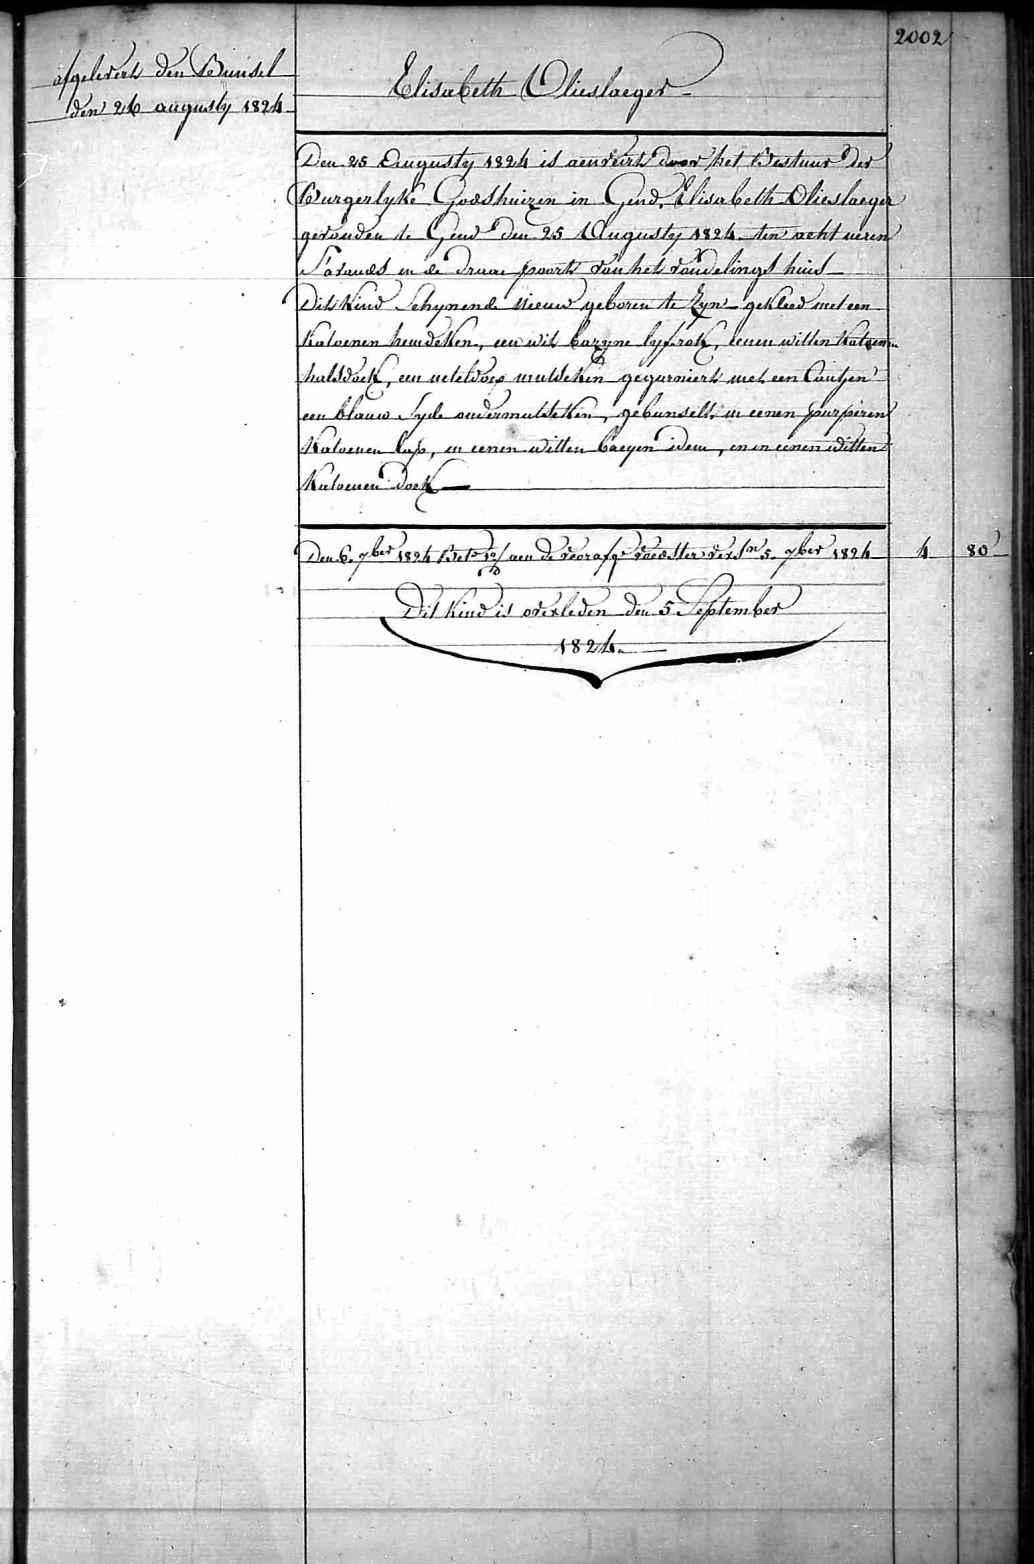 2002
afgelevert den Bunsel
den 26 augusty 1824
Elisabeth Olieslaeger
Den 25 Augusty 1824 is aenveirt door het Bestuur der
Burgerlyke Godshuizen in Gend, Elisabeth Olieslaeger
gevonden te Gend den 25 Augusty 1824 ten acht ueren
S'avonds in de draae poorte van het vondelings huis
Dit Kind Schynende nieuw geboren te Zyn gekleed met een
Katoenen hemdeken, een wit bazyne lyfrok, eenen witten Katoenen
halsdoek, een neteldoex mutseken gegarniert met een Cantjen
een blauw Syde ondermutseken, gebunselt in eenen purperen
Katoenen lap, in eenen witten baeyen idem, en in eenen witten
Katoenen doek
Den 6 7ber 1824 Bet. 12/ aen de voorafge voedster versn 5. 7ber 1824 4 80
Dit Kind is overleden den 5 September
1824.